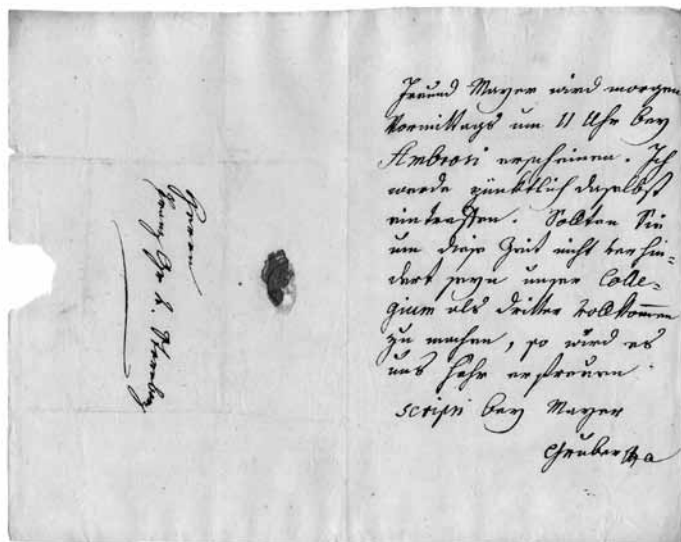 Herrn
Franz Gr. v. Sternberg
Freund Mayer wird morgen
Vormittags um 11 Uhr bey
Ambrosi erscheinen. Ich
werde pünktlich daselbst
eintreffen. Sollten Sie
um diese Zeit nicht verhin=
dert seyn unser Colle=
gium als dritter vollkommen
zu machen, so wird es
uns sehr erfreuen
scripsi bey Mayer
Gruber